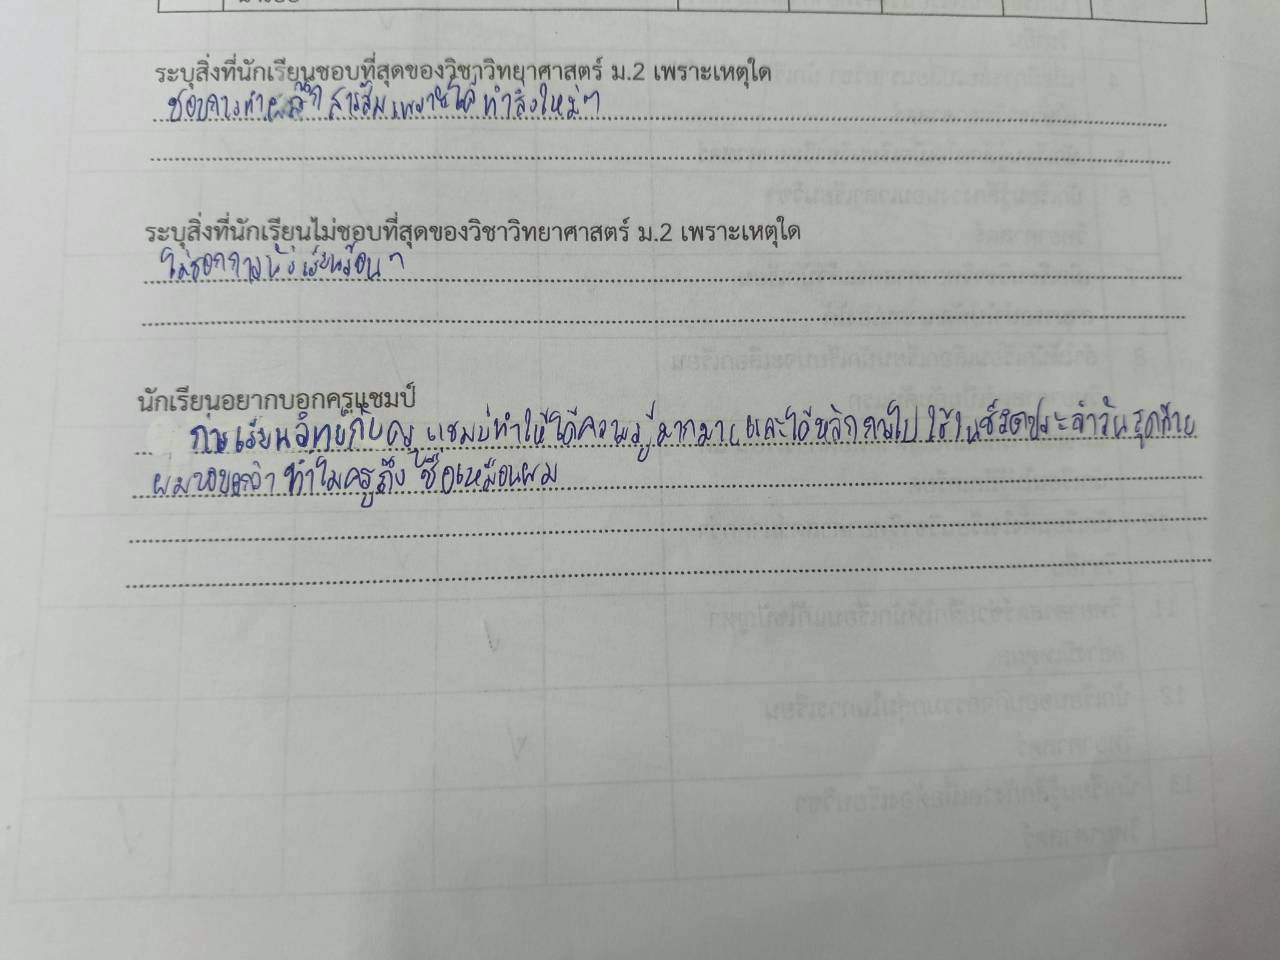 ระบุสิ่งที่นักเรียนชอบที่สุดของวิชาวิทยาศาสตร์ ม.2 เพราะเหตุใด
ชอบการทำผลึก สารส้ม เพราะได้ทำสิ่งใหม่ๆ
ระบุสิ่งที่นักเรียนไม่ชอบที่สุดของวิชาวิทยาศาสตร์ ม.2 เพราะเหตุใด
ไม่ชอบ ห้องเรียนร้อน ๆ
นักเรียนอยากบอกครูแชมป์
การเรียนวิทย์กับครู แชมป์ทำให้ได้ความรู้มากมาย และได้หลักการไป ใช้ในชีวิตประจำวัน สุดท้าย
ผมขอบอกว่า ทำไมครูถึง ชื่อเหมือนผม